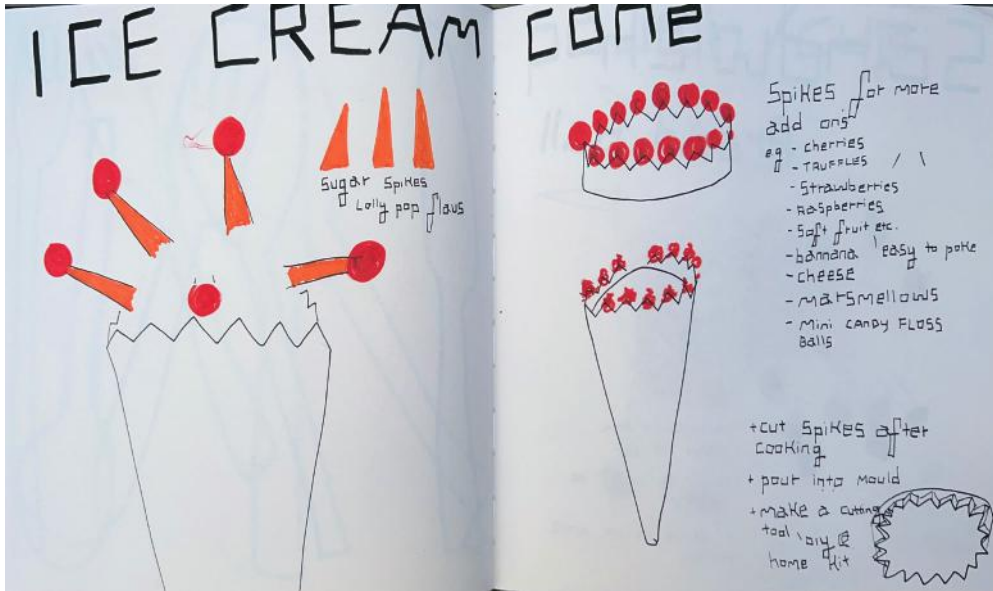 ICE CREAM CONE
Sugar Spikes
Lolly pop flavs
Spikes for more
add on's
eg - cherries
- TRUFFLES
- Strawberries
- Raspberries
- Soft fruit etc.
- bannana 'easy to poke
- cheese
- marsmellows
- Mini CANDY FLOSS
Balls
+ cut Spikes after
cooking
+ pour into mould
+ make a cutting
tool 'DIY @
home kit